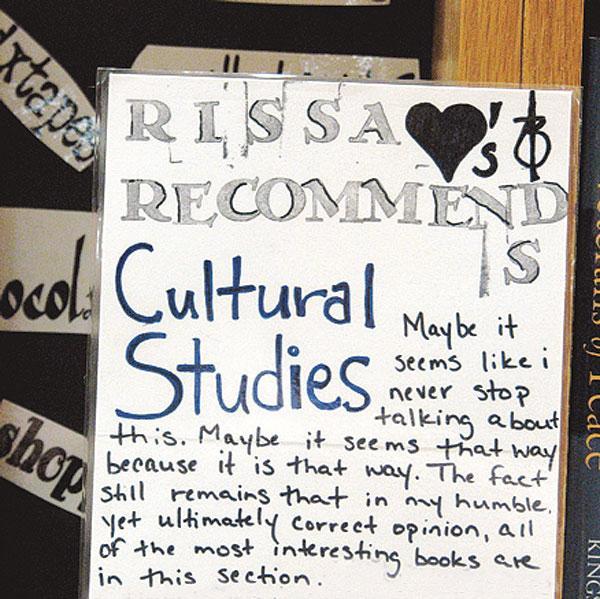 RISSA ♥'s &
RECOMMENDS
Cultural
Studies
Maybe it
seems like i
never stop
talking about
this. Maybe it seems that way
because it is that way. The fact
still remains that in my humble,
yet ultimately correct opinion, all
of the most interesting books are
in this section.
xtapes
ocol
shop
of Peace
KINGS